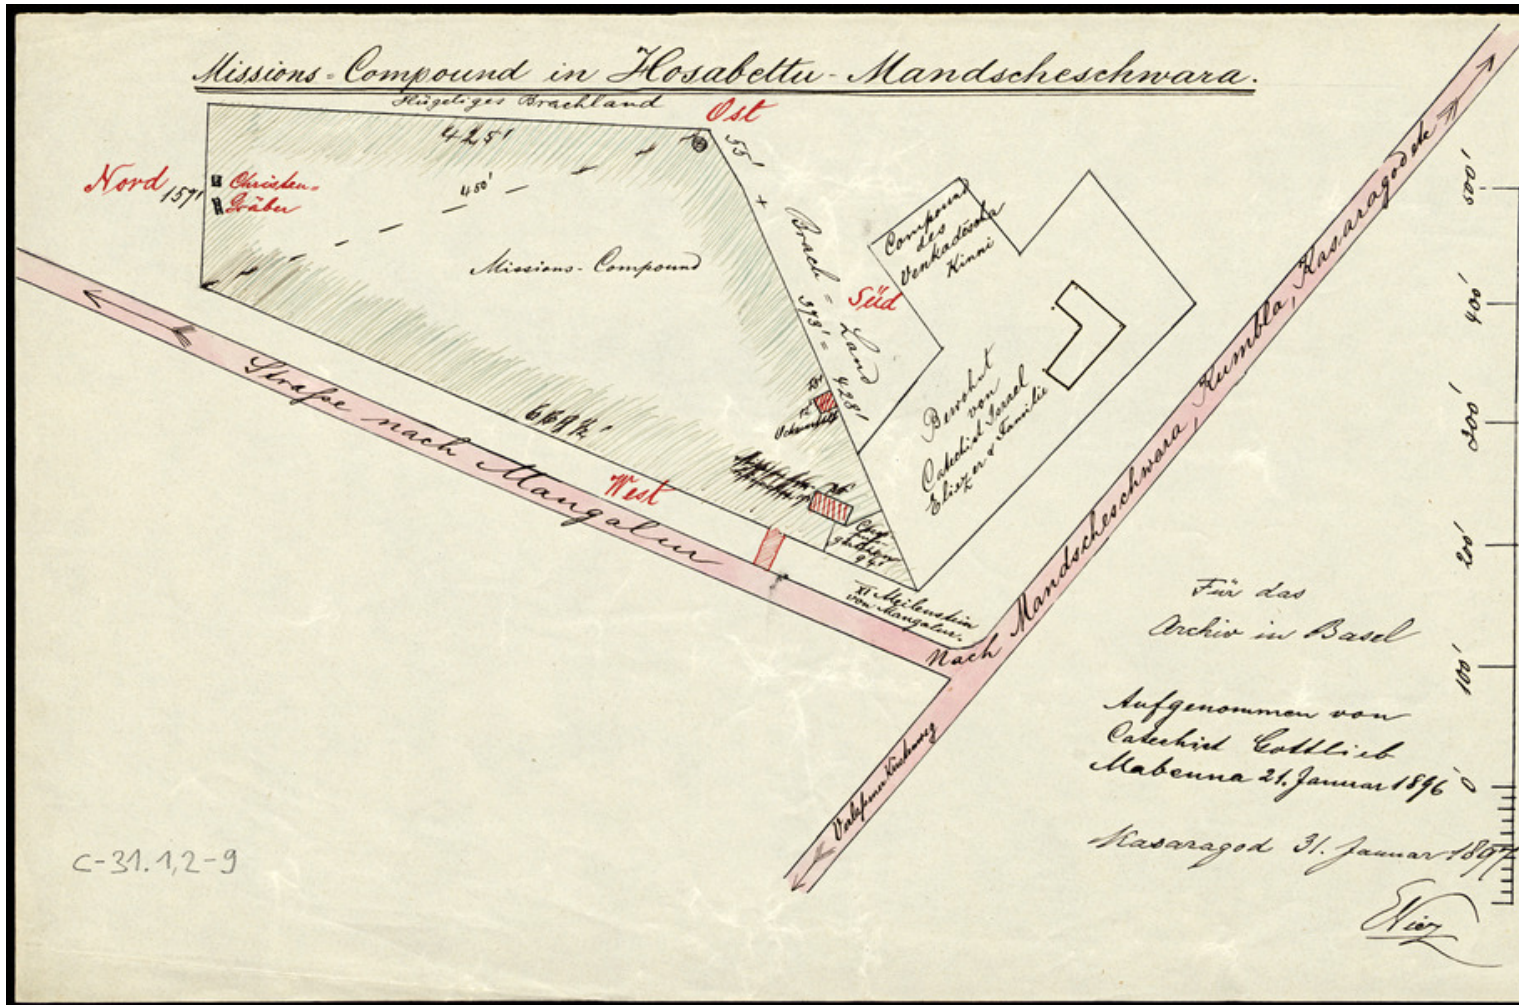 Missions-Compound in Hosabettu-Mandscheschwara.
Hügeliges Brachland
Ost
425'
55'
Nord
157'
Christen=
Gräber
450'
Missions-Compound
Brach=Land
393'= 428'
Süd
Compound
des
Venkadescha
Kinni
Bewohnt
von
Catechist Israel
Eliezer & Familie
12'
669½'
West
94'
Straße nach Mangalur
XI Meilenstein
von Mangalur.
Nach Mandscheschwara, Kumbla, Kasaragod etc
500'
400'
300'
200'
100'
0'
Für das
Archiv in Basel
Aufgenommen von
Catechist Gottlieb
Mabenna 21. Januar 1896
Kasaragod 31. Januar 1897
C-31.1,2-9